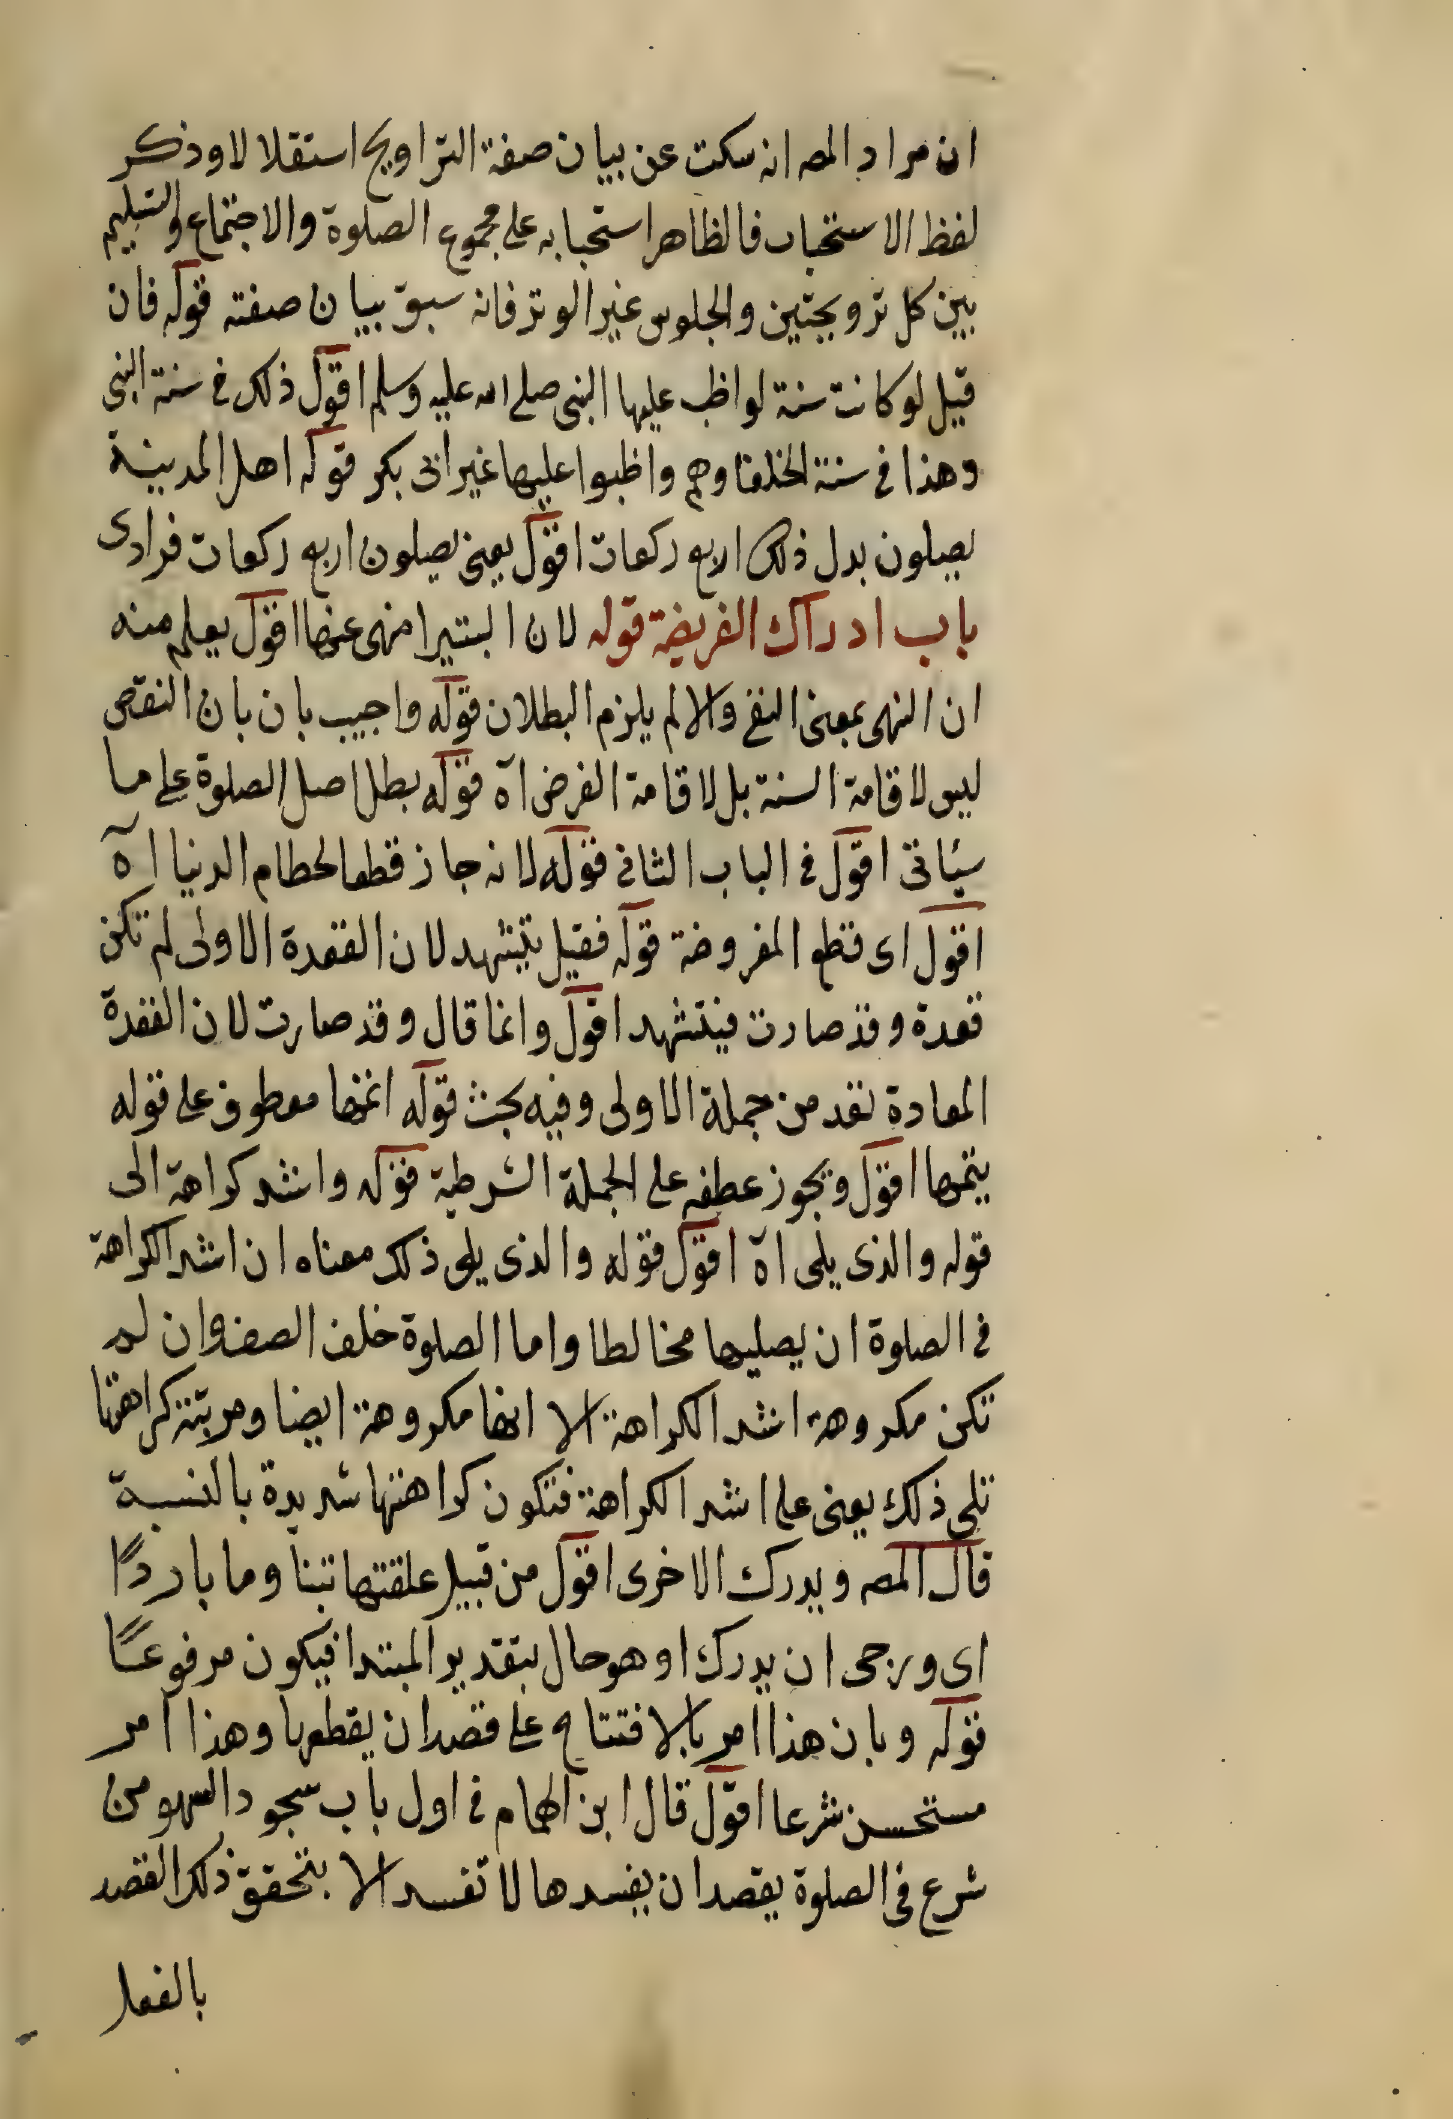 ان مراد المص انه سكت عن بيان صفة التراويح استقلالا وذكر
لفظ الاستحباب فالظاهر استحبابه على مجموع الصلوة والاجتماع والتسليم
بين كل ترويحتين والجلوس غير الوتر فانه سبق بيان صفته قوله فان
قيل لو كانت سنة لواظب عليها النبى صلى الله عليه وسلم اقول ذلك فى سنة النبى
وهذا فى سنة الخلفا وهم واظبوا عليها غير ابى بكر قوله اهل المدينة
يصلون بدل ذلك اربع ركعات اقول يعنى يصلون اربع ركعات فرادى
باب ادراك الفريضة قوله لان البتيرا منهى عنها اقول يعلم منه
ان النهى بمعنى النفى والا لم يلزم البطلان قوله واجيب بان بان النقض
ليس لاقامة السنة بل لاقامة الفرض اه قوله بطل اصل الصلوة على ما
سيأتى اقول فى الباب الثانى قوله لانه جاز قطعا لحطام الدنيا اه
اقول اى قطع المفروضة قوله فقيل يتشهد لان القعدة الاولى لم تكن
قعدة وقد صارت فيتشهد اقول وانما قال وقد صارت لان القعدة
المعادة تعد من جملة الاولى وفيه بحث قوله اتمها معطوف على قوله
يتمها اقول ويجوز عطفه على الجملة الشرطية قوله واشد كراهة الى
قوله والذى يلى اه اقول قوله والذى يلى ذلك معناه ان اشد الكراهة
فى الصلوة ان يصليها مخالطا واما الصلوة خلف الصف وان لم
تكن مكروهة اشد الكراهة الا انها مكروهة ايضا ومرتبة كراهتها
تلى ذلك يعنى على اشد الكراهة فتكون كراهتها شديدة بالنسبة
قال المص ويدرك الاخرى اقول من قبيل علفتها تبنا وما باردًا
اى ورجى ان يدرك او هو حال بتقدير المبتدا فيكون مرفوعًا
قوله وبان هذا امر بالافتتاح على قصد ان يقطعها وهذا امر
مستحسن شرعا اقول قال ابن الهمام فى اول باب سجود السهو من
شرع فى الصلوة يقصد ان يفسدها لا تفسد الا بتحقق ذلك القصد
بالفعل